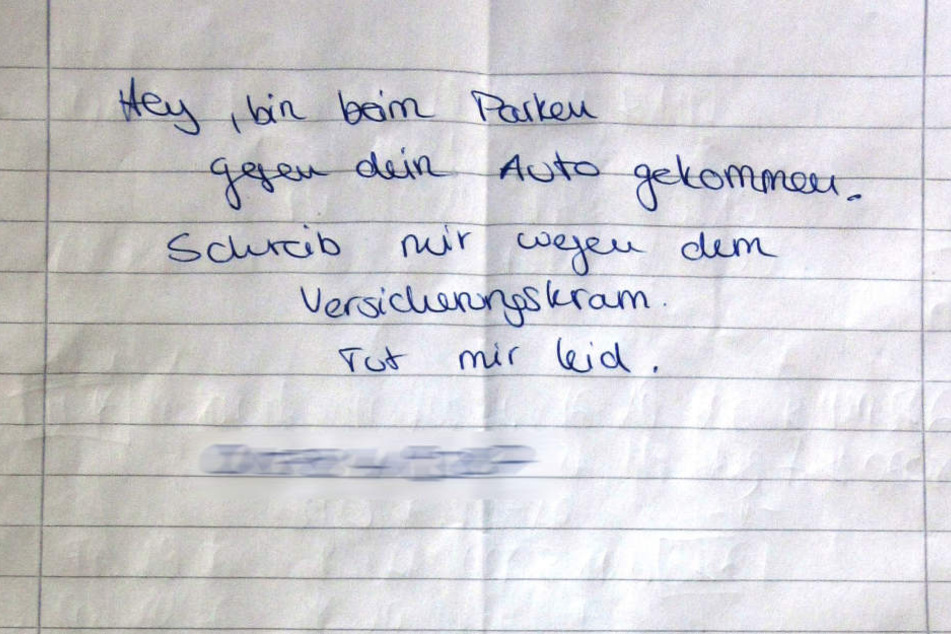 Hey, bin beim Parken
gegen dein Auto gekommen.
Schreib mir wegen dem
Versicherungskram.
Tut mir leid.